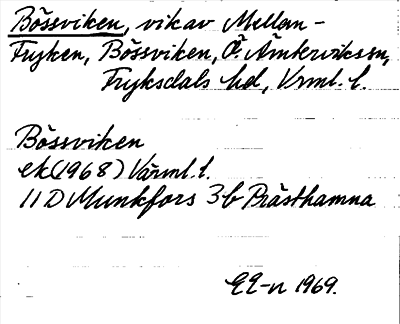 Bössviken, vik av Mellan-
Fryken, Bössviken, Ö. Ämterviks sn,
Fryksdals hd, Vrml. l.
Bössviken
ek (1968) Värml. l.
11 D Munkfors 3b Prästhamna
EE-n 1969.